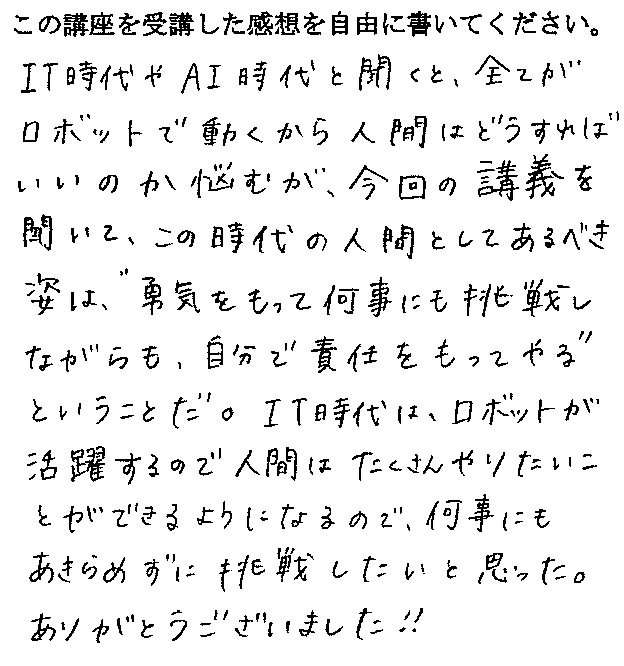 この講座を受講した感想を自由に書いてください。
IT時代やAI時代と聞くと、全てが
ロボットで動くから人間はどうすれば
いいのか悩むが、今回の講義を
聞いて、この時代の人間としてあるべき
姿は、"勇気をもって何事にも挑戦し
ながらも、自分で責任をもってやる"
ということだ。IT時代は、ロボットが
活躍するので人間はたくさんやりたいこ
とができるようになるので、何事にも
あきらめずに挑戦したいと思った。
ありがとうございました!!